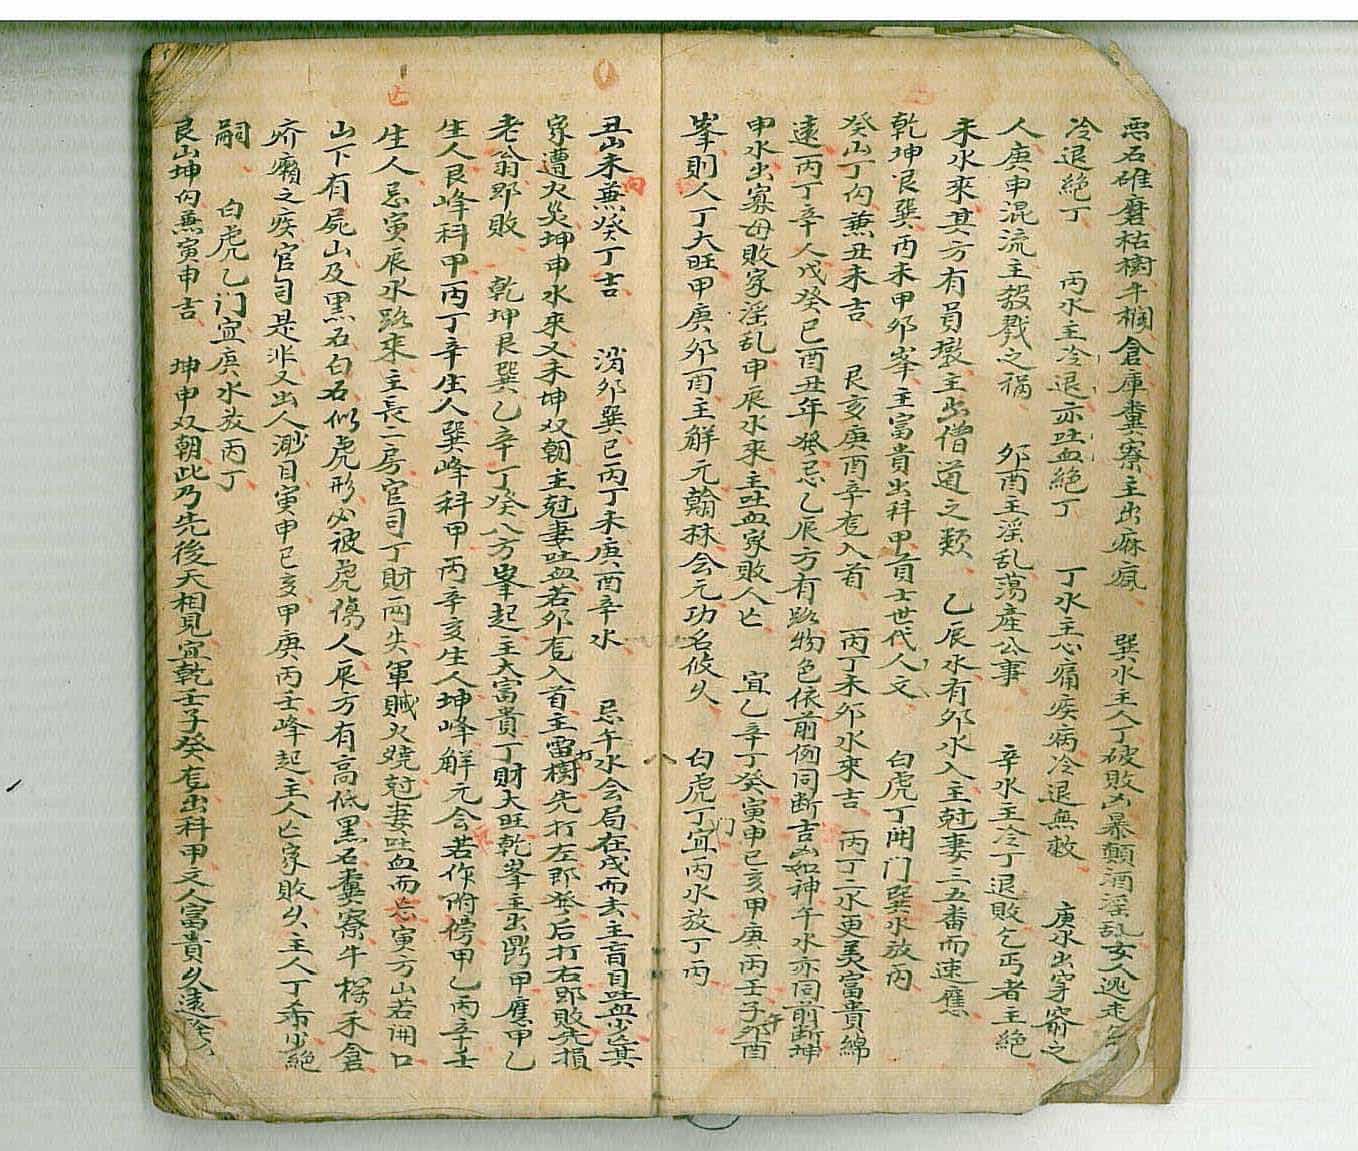 惡石碓磨枯樹牛欄倉庫糞寮主出痲瘋　巽水主人丁破敗凶暴顛酒淫乱女人逃走
冷退絶丁　丙水主冷退亦吐血絶丁　丁水主心痛疾病冷退無救　庚水出穿窬之
人庚申混流主殺戮之禍　卯酉主淫乱蕩產公事　辛水主冷丁退敗乞丐者主絶
未水來其方有員墩主出僧道之類　乙辰水有卯水入主尅妻三五番而速應
乾坤艮巽丙未甲卯峯主富貴出科甲百士世代人文　白虎丁開门巽水放丙
癸山丁向兼丑未吉　艮亥庚酉辛竜入首　丙丁未卯水來吉　丙丁二水更美富貴綿
遠丙丁辛人戊癸巳酉丑年發忌乙辰方有路物色依前例同断吉凶如神午水亦同前断坤
申水出寡母敗家淫乱申辰水來主吐血家敗人亡　宜乙辛丁癸寅申巳亥甲庚丙壬子午卯酉
峯則人丁大旺甲庚卯酉主解元翰林会元功名攸久　白虎丁门宜丙水放丁丙
丑山未向兼癸丁吉　消卯巽巳丙丁未庚酉辛水　忌午水会局在戌而去主盲目吐血少亡其
家遭火災坤申水來又未坤双朝主尅妻吐血若卯竜入首主雷打樹先打左即發后打右即敗先損
老翁即敗　乾坤艮巽乙辛丁癸八方峯起主大富貴丁財大旺乾峯主出鼎甲應甲乙
生人艮峰科甲丙丁辛生人巽峰科甲丙辛亥生人坤峰解元会若作附傍甲乙丙辛壬
生人忌寅辰水路來主長一房官司丁財両失軍賊火燒尅妻吐血而忘寅方山若開口
山下有屍山及黑石白石似虎形必被虎傷人辰方有高低黑石糞寮牛楔禾倉
疥癩之疾官司是非又出人渺目寅申巳亥甲庚丙壬峰起主人亡家敗久主人丁希少絕
嗣　白虎乙门宜庚水放丙丁
艮山坤向兼寅申吉　坤申双朝此乃先後天相見宜乾壬子癸竜出科甲文人富貴久遠